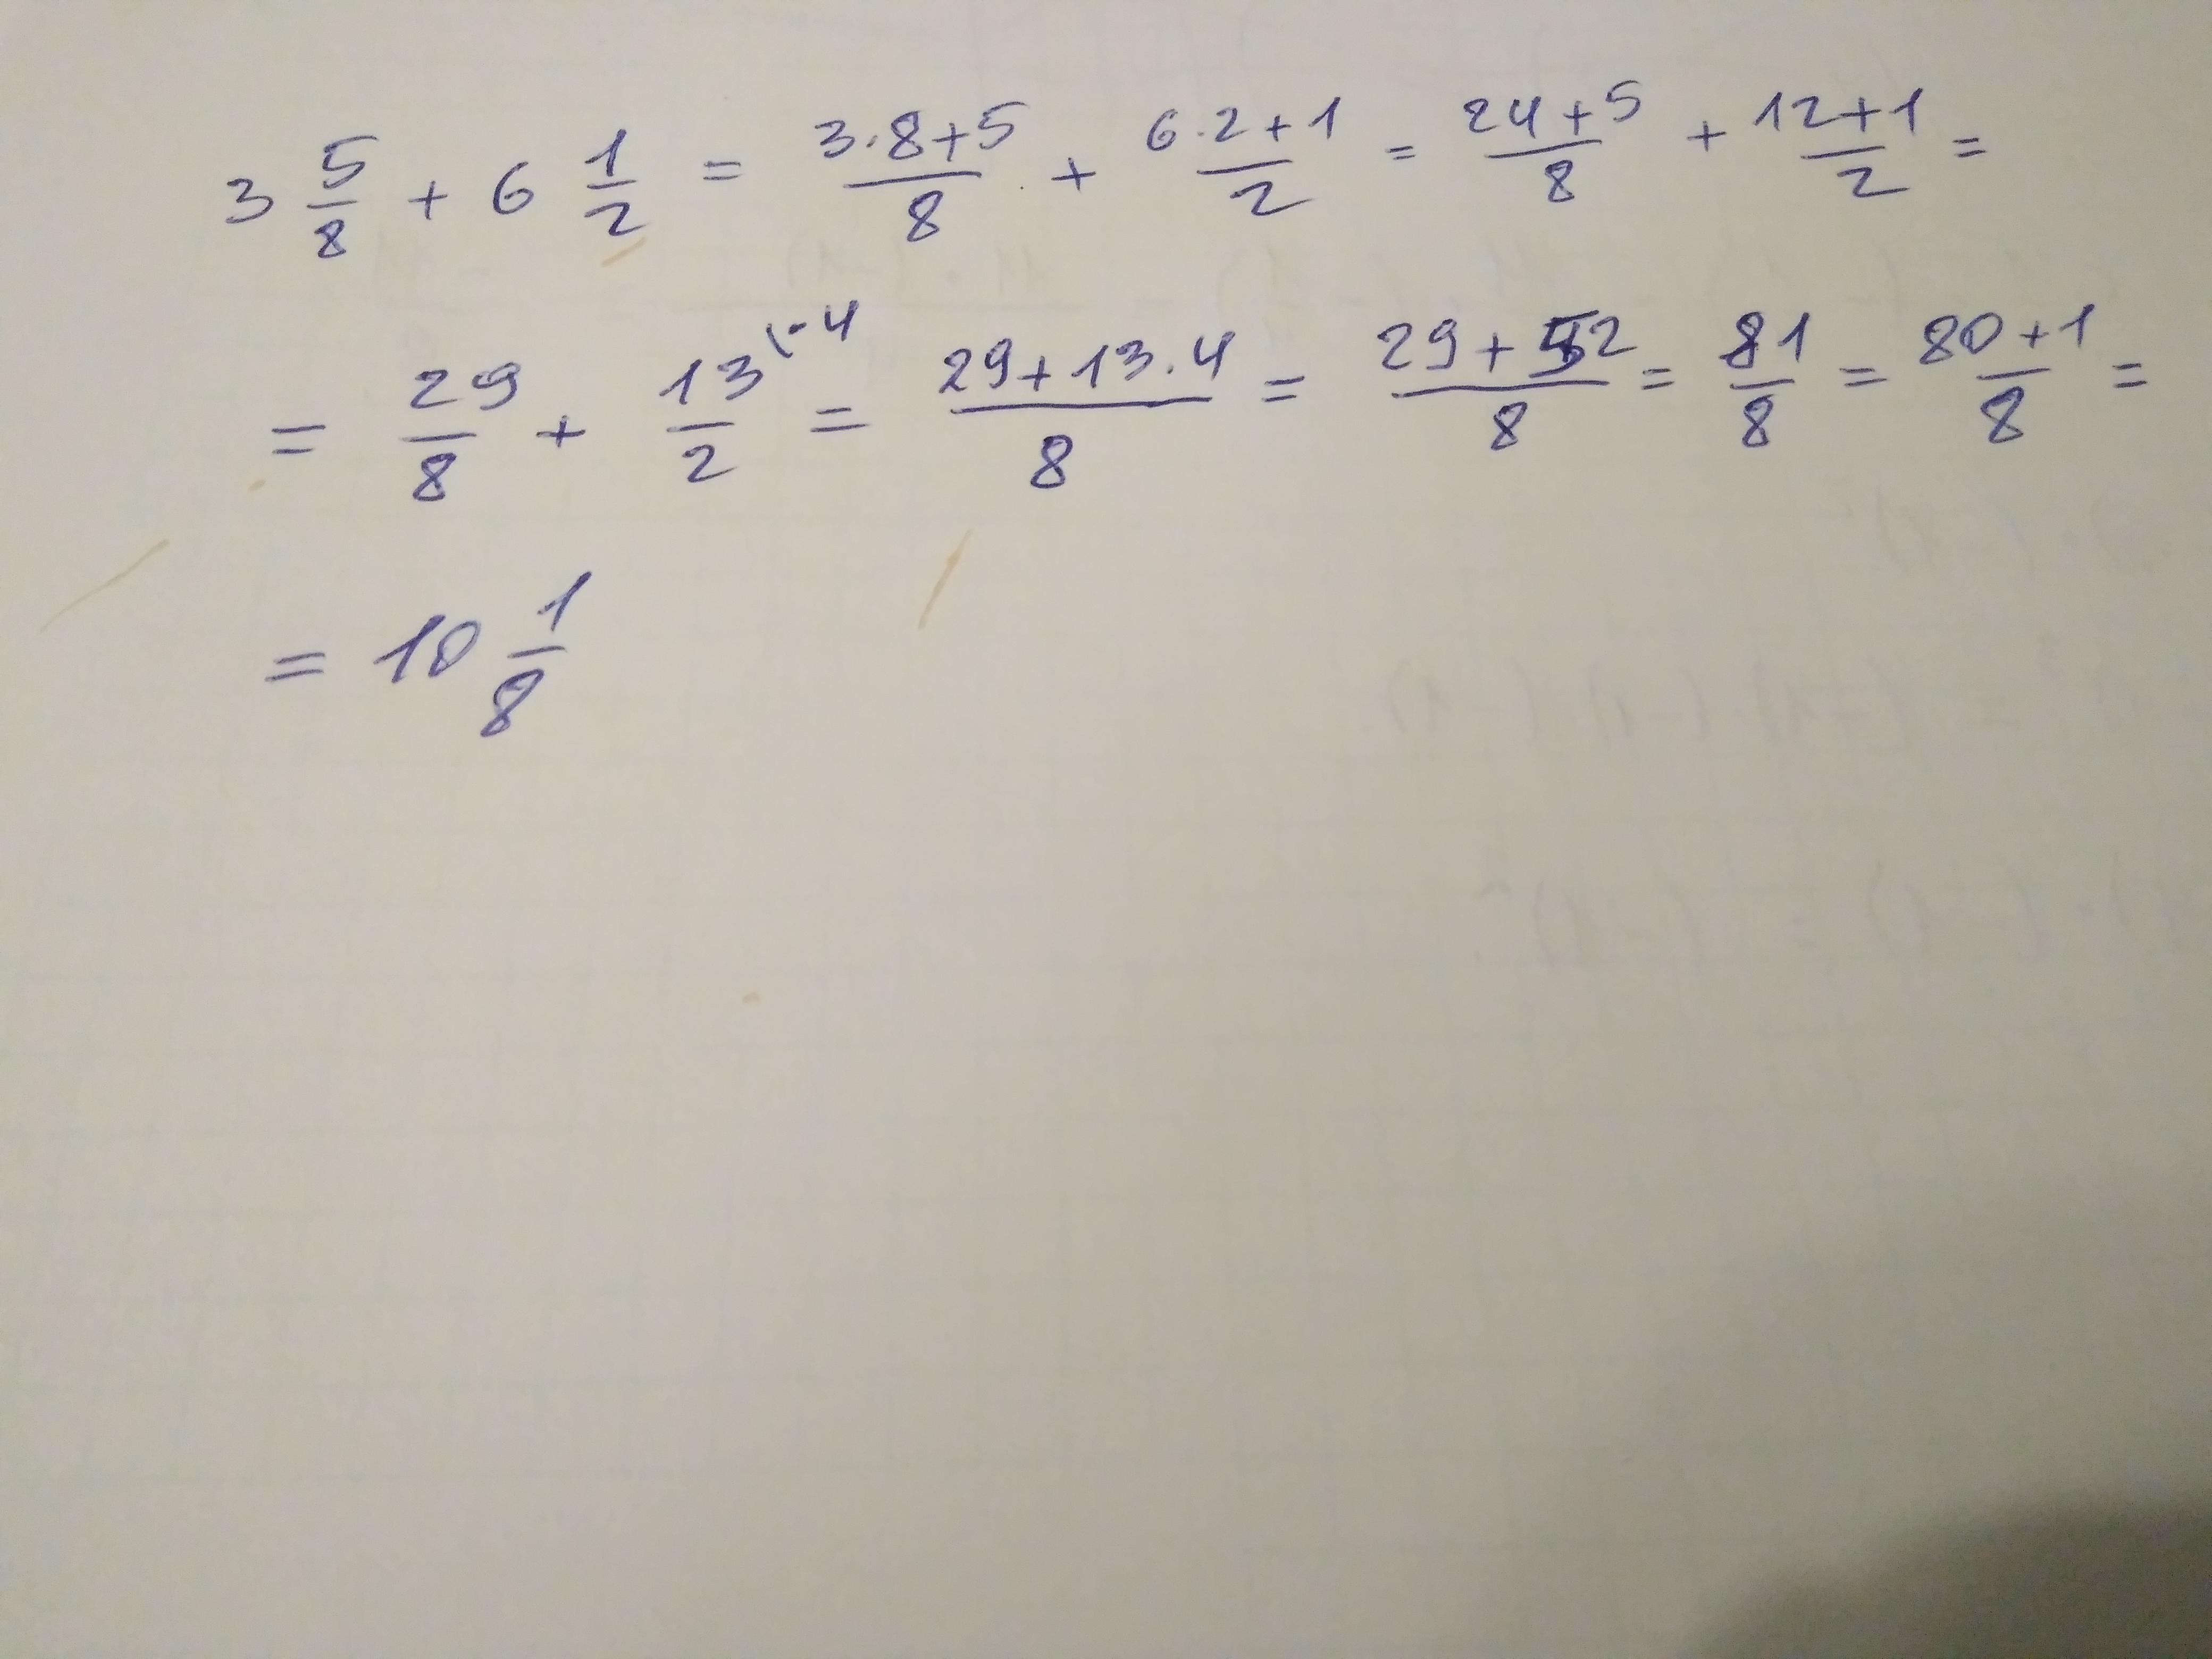 3 5/8 + 6 1/2 = 3·8+5/8 + 6·2+1/2 = 24+5/8 + 12+1/2 =
= 29/8 + 13\·4/2 = 29+13·4/8 = 29+52/8 = 81/8 = 80+1/8 =
= 10 1/8